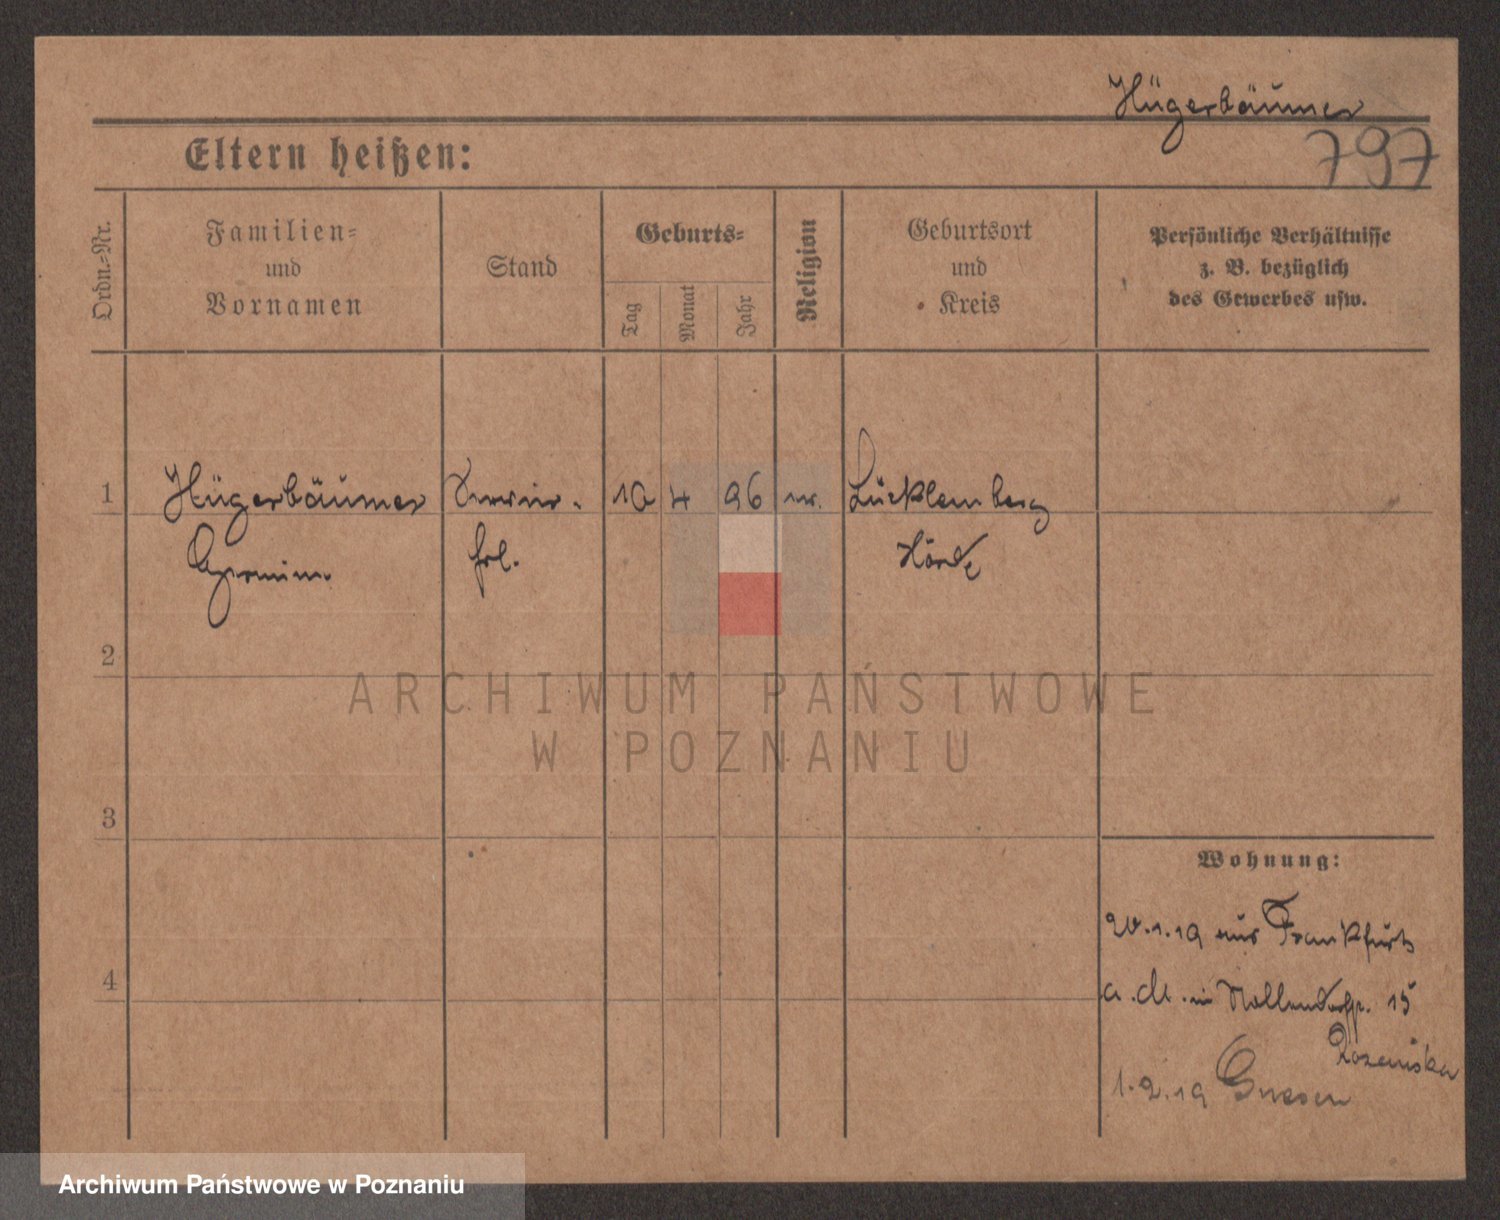 Hügerbäumer
797
Eltern heißen:
Ordn.-Nr.
Familien-
und
Vornamen
Stand
Geburts-
Tag
Monat
Jahr
Religion
Geburtsort
und
Kreis
Persönliche Verhältnisse
z. B. bezüglich
des Gewerbes usw.
1
Hügerbäumer
Servier-
10
4
96
Lücklemberg
frl.
Hörde
2
ARCHIWUM PAŃSTWOWE
W POZNANIU
3
Wohnung:
20.1.19 aus Frankfurt
4
a. M. in 15
1.2.19 Gnesen
Archiwum Państwowe w Poznaniu